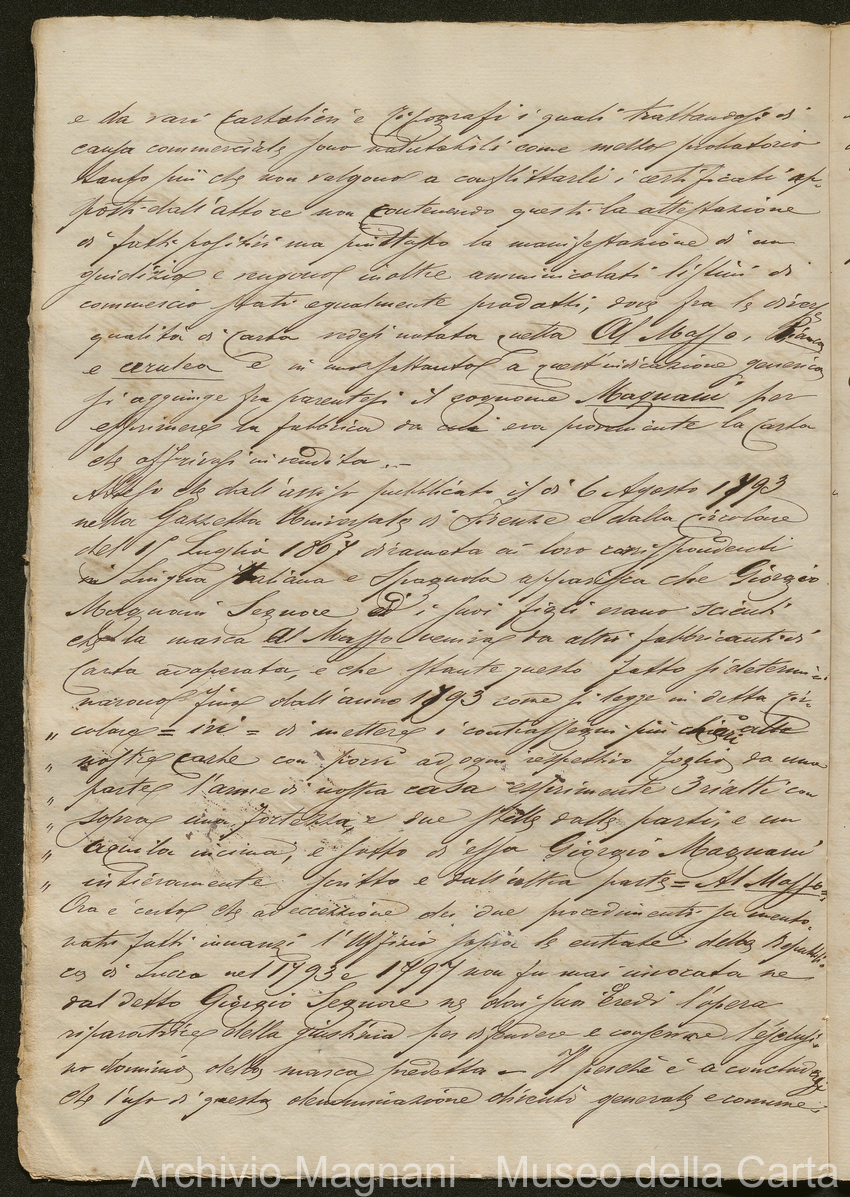 e da varj cartolieri e Tipografi i quali trattandosi di
causa commerciale sono valutabili come mezzo probatorio
tanto più che non valgono a conflittarli i certificati op-
posti dall'attore non contenendo questi la attestazione
di fatti positivi ma piuttosto la manifestazione di un
giudizio e vengono inoltre amminicolati listini di
commercio stati egualmente prodotti, dove fra le diverse
qualità di Carta vedesi notata quella Al Masso, bianca
e cerulea e in uno soltanto a quest'indicazione generica
si aggiunge fra parentesi il cognome Magnani per
esprimere la fabbrica da cui era proveniente la Carta
che offrivasi in vendita. —
Atteso che dall'avviso pubblicato il dì 6 Agosto 1793
nella Gazzetta Universale di Firenze e dalla circolare
del 15 Luglio 1807 diramata ai loro corrispondenti
in Lingua Italiana e Spagnola apparisca che Giorgio
Magnani Seniore ed i suoi figli erano scienti
che la marca Al Masso veniva da altri fabbricanti di
Carta adoperata, e che stante questo fatto si determi-
narono fino dall'anno 1793 come si legge in detta Cir-
„ colare = ivi = di mettere i contrassegni più chiari alle
„ nostre carte con porvi ad ogni respettivo foglio da una
„ parte l'arme di nostra casa esprimente 3 rialti con
„ sopra una fortezza e due stelle dalle parti, e un
„ aquila in cima, e sotto di essa Giorgio Magnani
„ intieramente scritto e dall'altra parte = Al Masso =
Ora è certo che ad eccezione dei due procedimenti sa mento-
vati fatti innanzi l'Uffizio sopra le entrate della Repubbli-
ca di Lucca nel 1793 e 1797 non fu mai invocata ne
dal detto Giorgio Seniore ne dai suoi Eredi l'opera
riparatrice della giustizia per difendere e conservare l'esclusi-
vo dominio della marca predetta — Il perchè è a concludersi
che l'uso di questa denominazione diventò generale e comune
Archivio Magnani - Museo della Carta